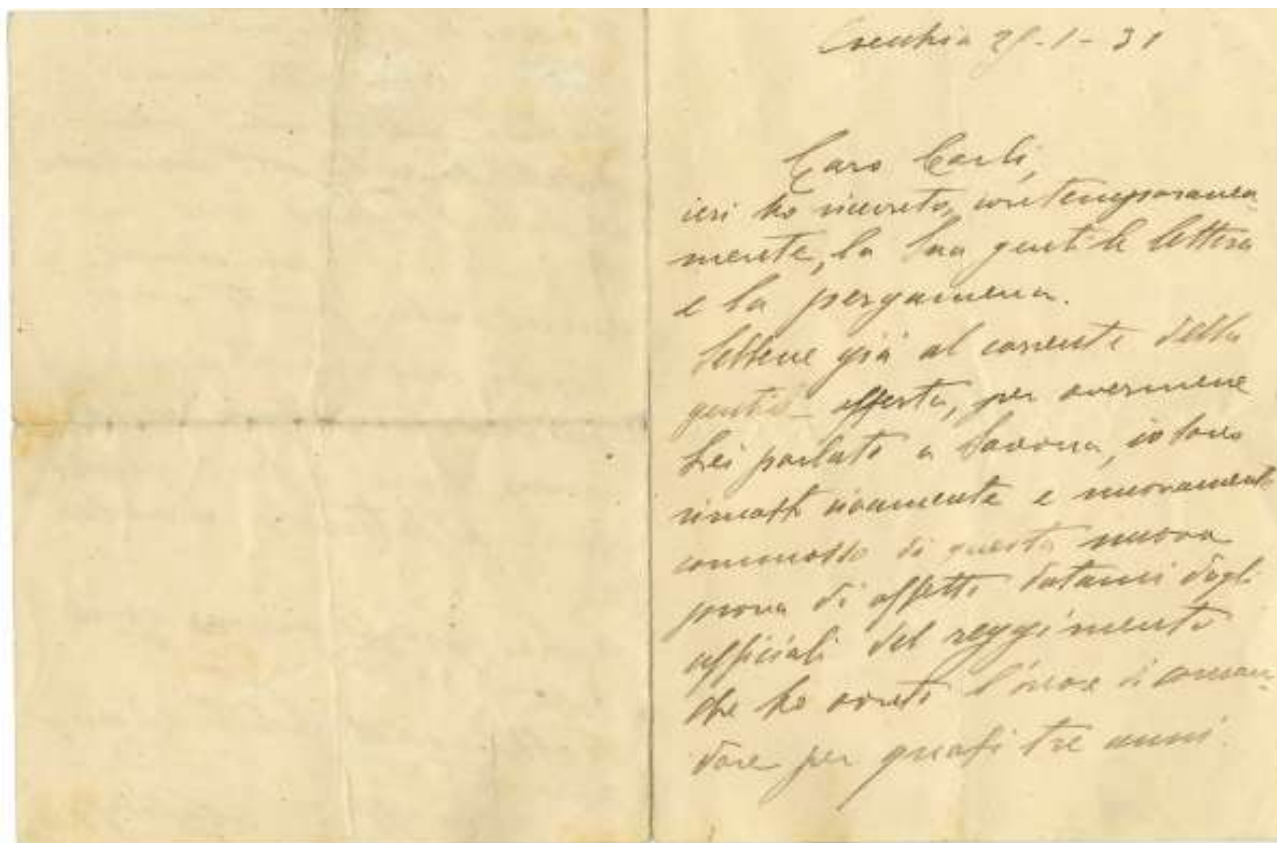 Caro Carli,
ieri ho ricevuto, contemporanea-
mente, la Sua gentile lettera
e la pergamena.
Sebbene già al corrente della
gentile offerta, per avermene
Lei parlato a Savona, io sono
rimasto vivamente e nuovamente
commosso di questa nuova
prova di affetto datami dagli
ufficiali del reggimento
che ho avuto l'onore di coman-
dare per quasi tre anni.